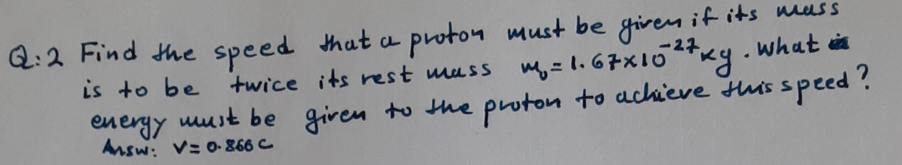 Q:2 Find the speed that a proton must be given if its mass
is to be twice its rest mass m₀=1.67×10⁻²⁷kg. What
energy must be given to the proton to achieve this speed?
Answ: V=0.866C